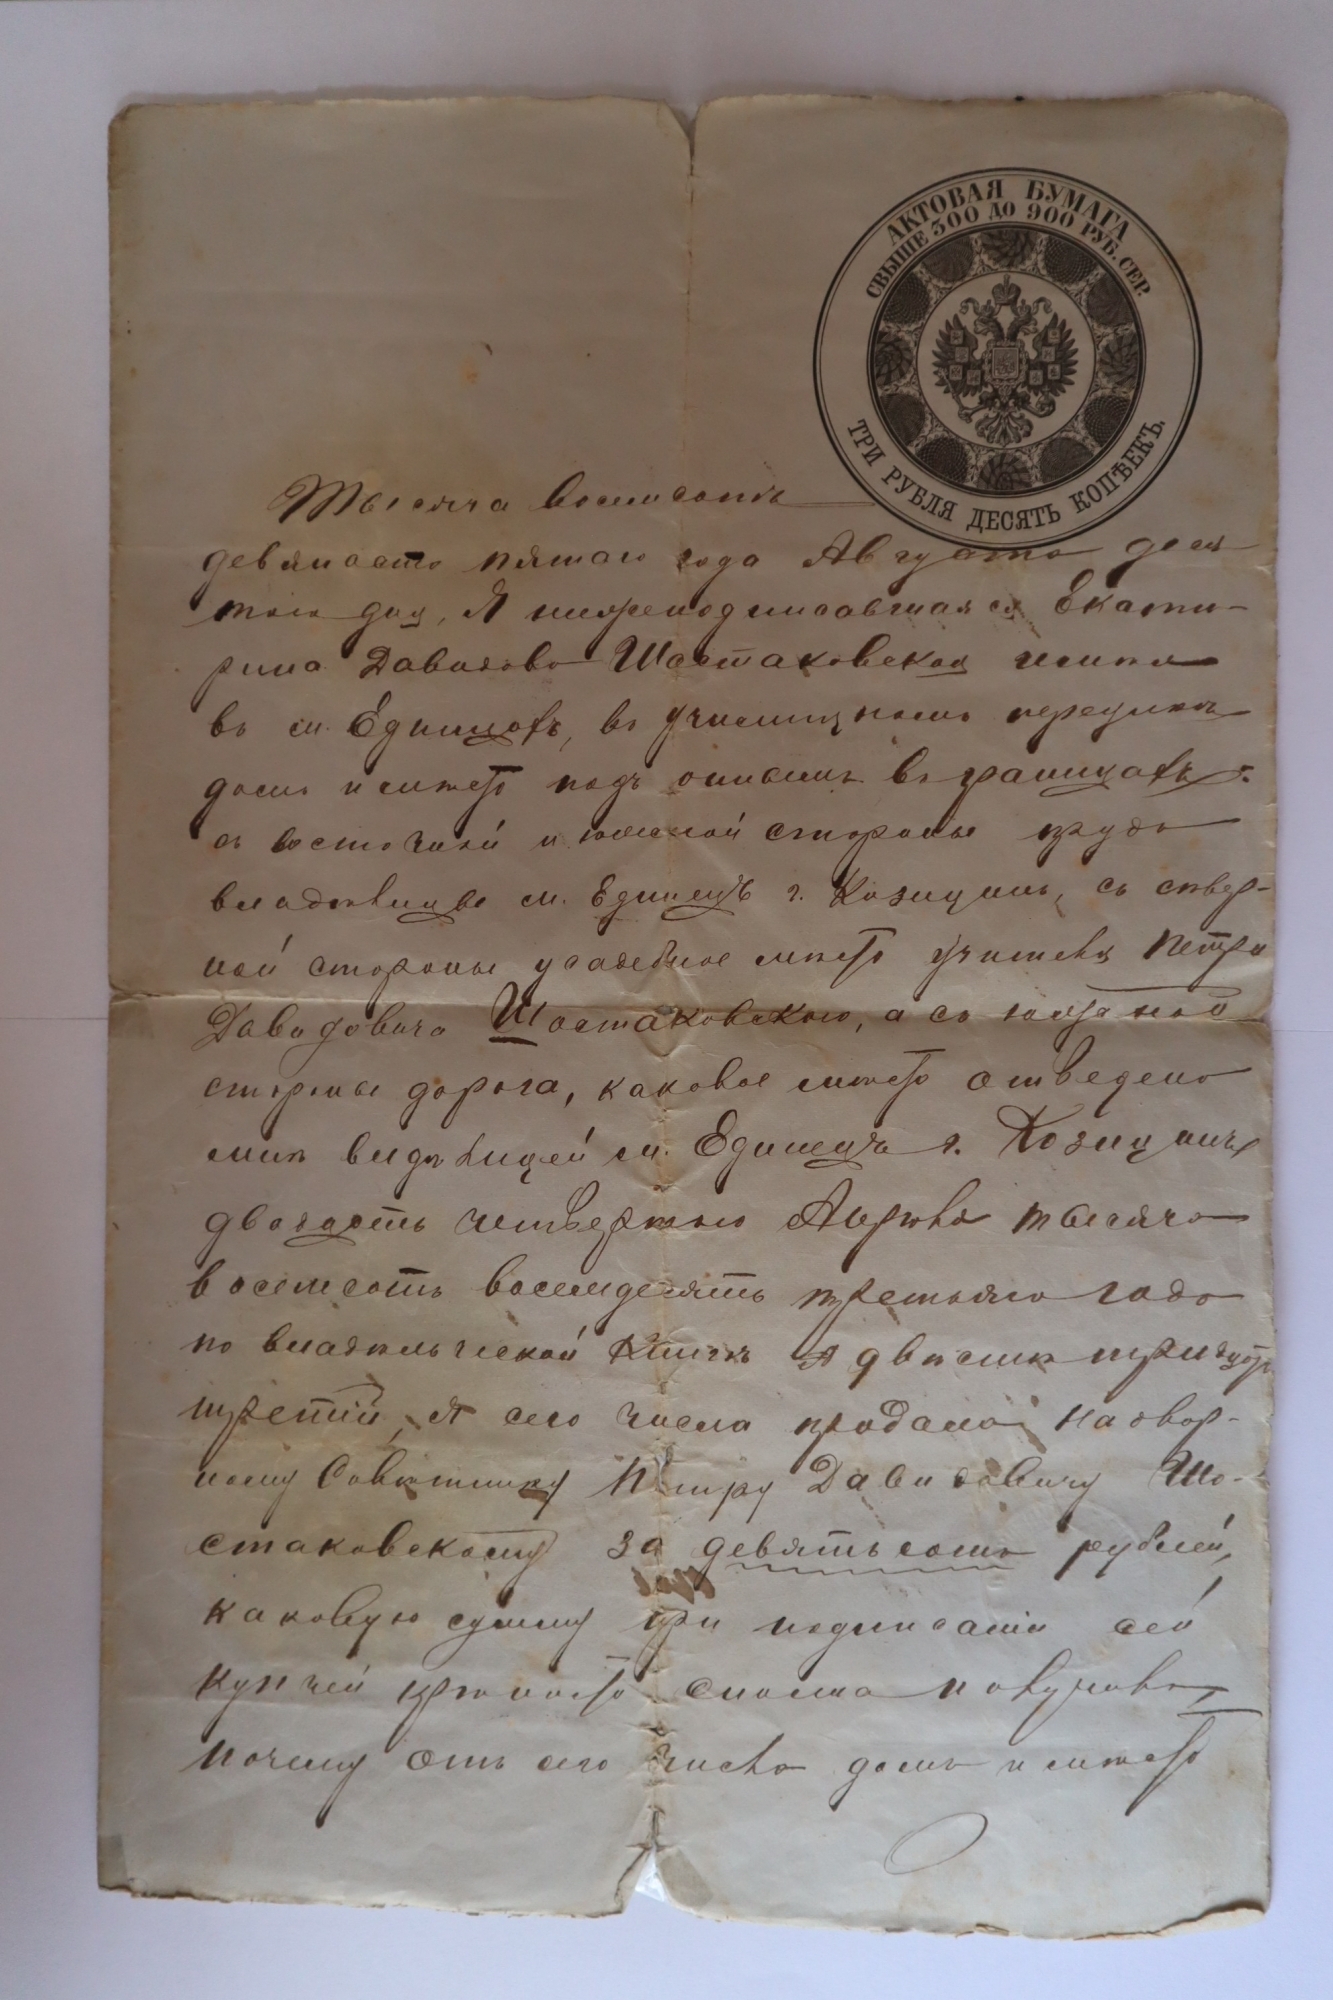 АКТОВАЯ БУМАГА
СВЫШЕ 300 ДО 900 РУБ. СЕР.
ТРИ РУБЛЯ ДЕСЯТЬ КОПѢЕКЪ.
Тысяча восемсотъ
девяносто пятаго года Августа деся
таго дня, Я нижеподписавшаяся Екати-
рина Давидова Шостаковская имѣя
въ м. Единцахъ, въ
домъ и мѣсто подъ онымъ въ границахъ:
съ восточной и южной стороны пруда
владѣлицы м. Единецъ г. Козицинъ, съ сѣвер-
ной стороны усадебное мѣсто учителя Петра
Давидовича Шостаковского, а съ западной
стороны дорога, каковое мѣсто отведено
мнѣ владѣлицей м. Единецъ г. Козициной
двадцать четвертого Апрѣля тысяча
восемсотъ восемдесятъ третьяго года
по владѣльческой Книгѣ двѣсти тридцать
третій, Я сего числа продала Надвор-
ному Совѣтнику Петру Давидовичу Шо-
стаковскому за девятьсотъ рублей,
каковую сумму при подписаніи сей
купчей крѣпости сполна получила,
почему отъ сего числа домъ и мѣсто